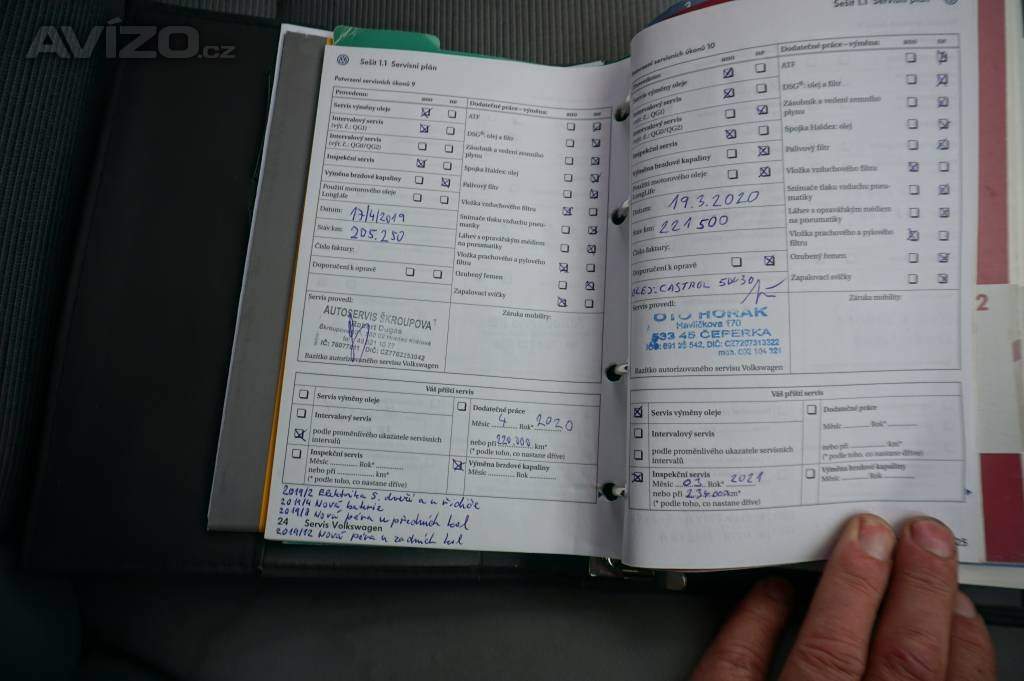 AVÍZO.cz
Sešit 1.1 Servisní plán
Potvrzení servisních úkonů 9
Provedeno:
ano ne
Servis výměny oleje
Intervalový servis
(výr. č.: QG1)
Intervalový servis
(výr. č.: QG0/QG2)
Inspekční servis
Výměna brzdové kapaliny
Použití motorového oleje
LongLife
Datum: 17/4/2019
Stav km: 205.250
Číslo faktury:
Doporučení k opravě
Dodatečné práce – výměna:
ano ne
ATF
DSG®: olej a filtr
Zásobník a vedení zemního
plynu
Spojka Haldex: olej
Palivový filtr
Vložka vzduchového filtru
Snímače tlaku vzduchu pneu-
matiky
Láhev s opravářským médiem
na pneumatiky
Vložka prachového a pylového
filtru
Ozubený řemen
Zapalovací svíčky
Servis provedl:
AUTOSERVIS ŠKROUPOVA
Robert Dugas
Razítko autorizovaného servisu Volkswagen
Záruka mobility:
Váš příští servis
Servis výměny oleje
Intervalový servis
podle proměnlivého ukazatele servisních
intervalů
Inspekční servis
Měsíc Rok*
nebo při km*
(* podle toho, co nastane dříve)
Dodatečné práce
Měsíc 4 Rok* 2020
nebo při 220.000 km*
(* podle toho, co nastane dříve)
Výměna brzdové kapaliny
Měsíc Rok*
2019/2 Elektrika 5. dveří
2019/4 Nová baterie
2019/8 Nová péra u předních kol
24 Servis Volkswagen
2019/12 Nová péra u zadních kol
Sešit 1.1 Servisní plán
Potvrzení servisních úkonů 10
Provedeno:
ano ne
Servis výměny oleje
Intervalový servis
(výr. č.: QG1)
Intervalový servis
(výr. č.: QG0/QG2)
Inspekční servis
Výměna brzdové kapaliny
Použití motorového oleje
LongLife
Datum: 19.3.2020
Stav km: 221 500
Číslo faktury:
Doporučení k opravě
OLEJ: CASTROL 5W30
Dodatečné práce – výměna:
ano ne
ATF
DSG®: olej a filtr
Zásobník a vedení zemního
plynu
Spojka Haldex: olej
Palivový filtr
Vložka vzduchového filtru
Snímače tlaku vzduchu pneu-
matiky
Láhev s opravářským médiem
na pneumatiky
Vložka prachového a pylového
filtru
Ozubený řemen
Zapalovací svíčky
Servis provedl:
OTO HORÁK
Havlíčkova 170
533 45 ČEPERKA
Razítko autorizovaného servisu Volkswagen
Záruka mobility:
Váš příští servis
Servis výměny oleje
Intervalový servis
podle proměnlivého ukazatele servisních
intervalů
Inspekční servis
Měsíc 03. Rok* 2021
nebo při 234.000 km*
(* podle toho, co nastane dříve)
Dodatečné práce
Měsíc Rok*
nebo při km*
(* podle toho, co nastane dříve)
Výměna brzdové kapaliny
Měsíc Rok*
25
2